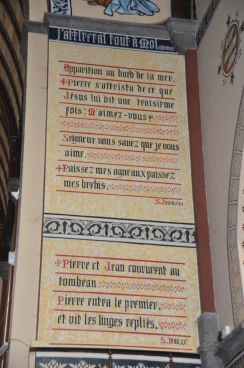 J'attirerai tout à Moi
Apparition au bord de la mer.
Pierre s'attrista de ce que
Jésus lui dit une troisième
fois: M'aimez-vous
Seigneur vous savez que je vous
aime.
Paissez mes agneaux paissez
mes brebis.
S. Jean
Pierre et Jean coururent au
tombeau
Pierre entra le premier,
et vit les linges repliés.
S. Jean